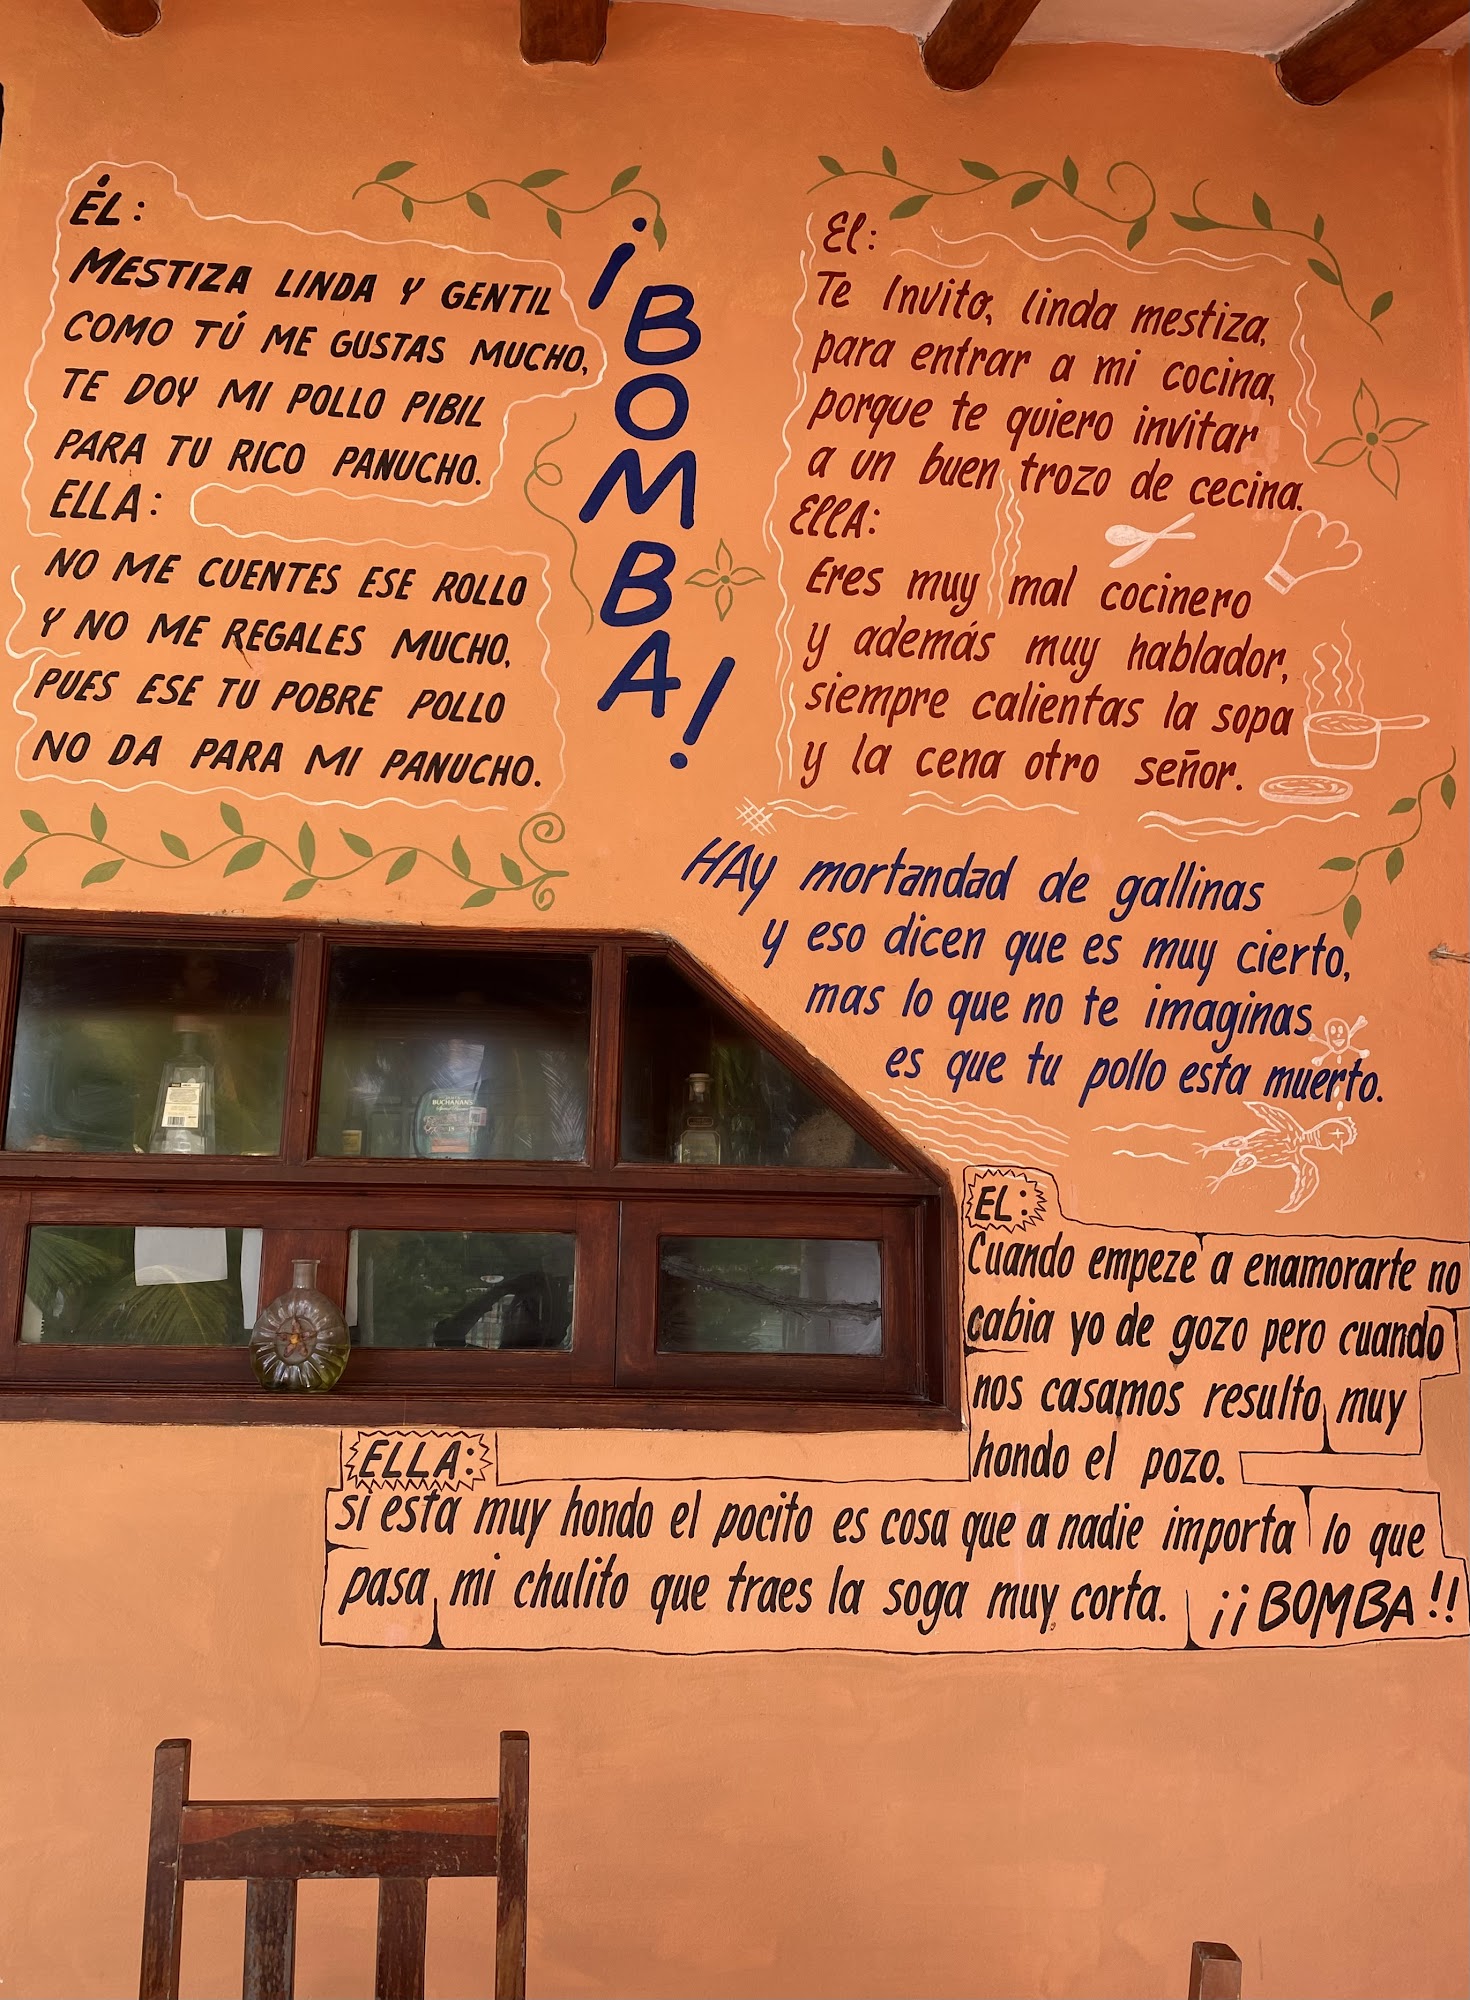 ÉL:
MESTIZA LINDA Y GENTIL
COMO TÚ ME GUSTAS MUCHO,
TE DOY MI POLLO PIBIL
PARA TU RICO PANUCHO.
ELLA:
NO ME CUENTES ESE ROLLO
Y NO ME REGALES MUCHO,
PUES ESE TU POBRE POLLO
NO DA PARA MI PANUCHO.
¡BOMBA!
El:
Te Invito, linda mestiza,
para entrar a mi cocina,
porque te quiero invitar
a un buen trozo de cecina.
ELLA:
Eres muy mal cocinero
y además muy hablador,
siempre calientas la sopa
y la cena otro señor.
HAy mortandad de gallinas
y eso dicen que es muy cierto,
mas lo que no te imaginas
es que tu pollo esta muerto.
BUCHANAN'S
EL:
Cuando empezé a enamorarte no
cabia yo de gozo pero cuando
nos casamos resulto muy
hondo el pozo.
ELLA:
si esta muy hondo el pocito es cosa que a nadie importa lo que
pasa mi chulito que traes la soga muy corta. ¡¡BOMBA!!